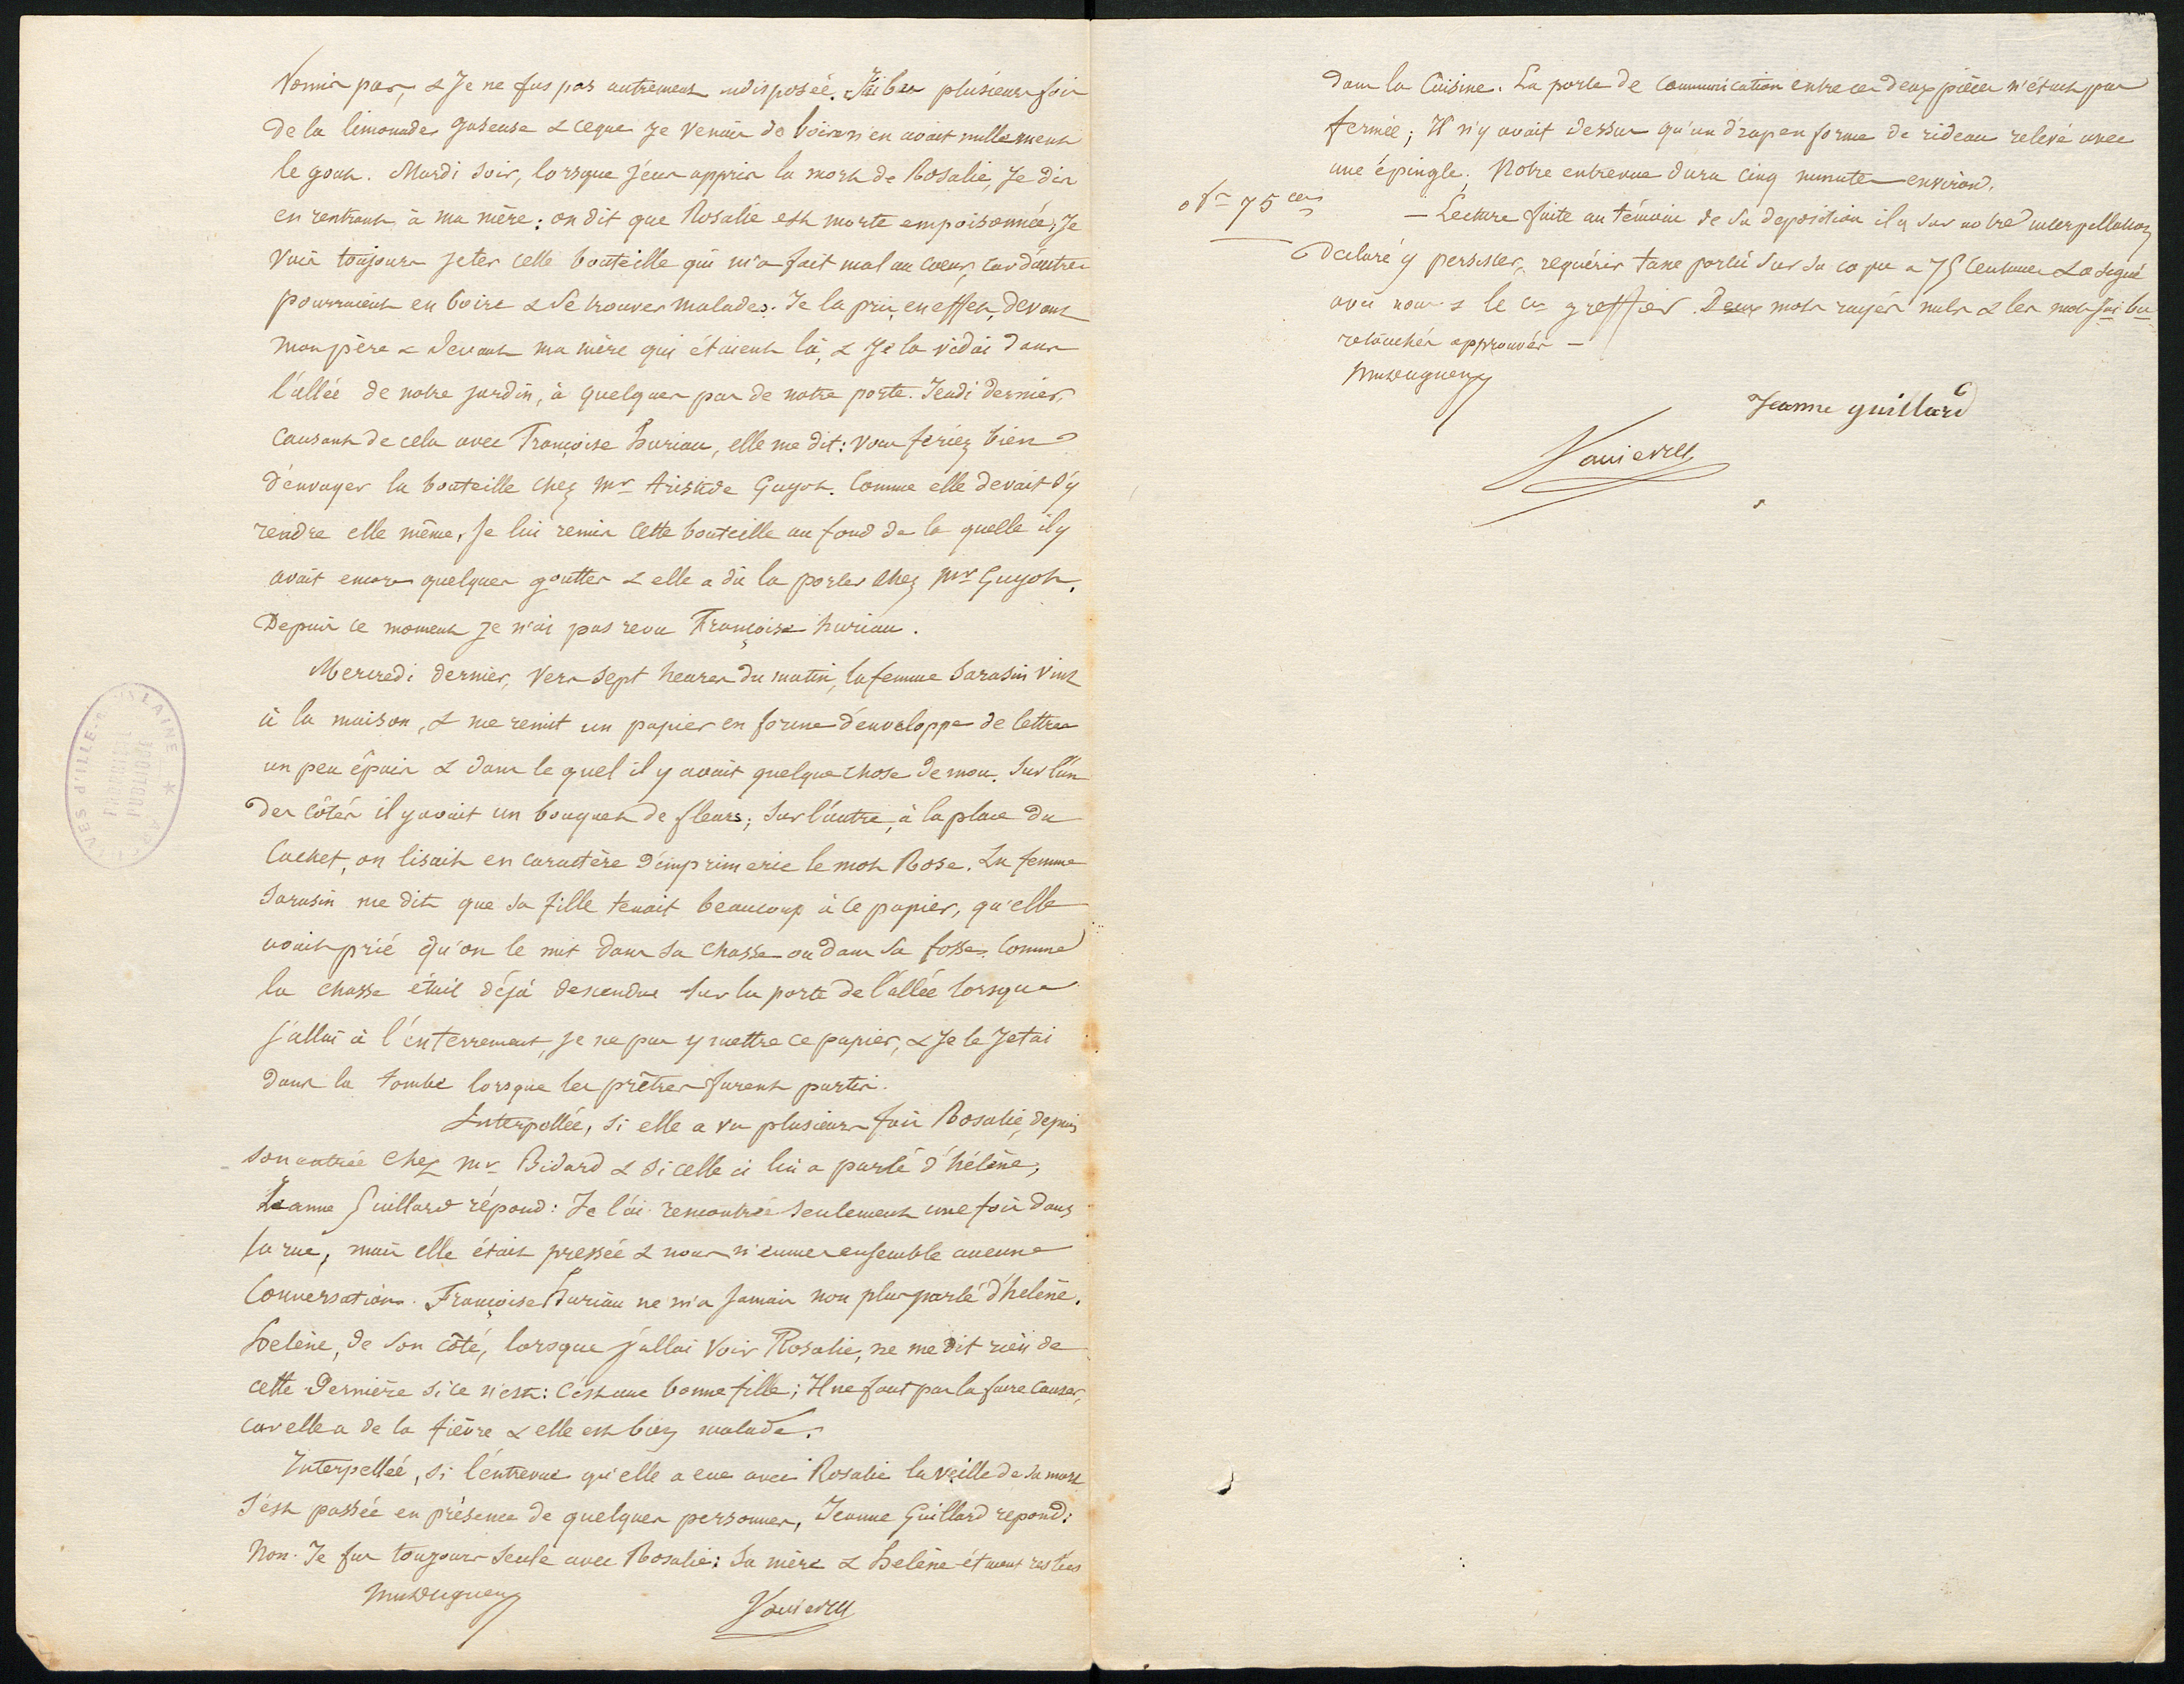 Vomis pas, & Je ne fus pas autrement indisposée. J'ai bu plusieurs fois
de la limonade gaseuse & ce que je venais de boire n'en avait nullement
le goût. Mardi soir, lorsque j'eus appris la mort de Rosalie, Je dis
en rentrant à ma mère: on dit que Rosalie est morte empoisonnée; Je
Vais toujours jeter cette bouteille qui m'a fait mal au cœur, car d'autres
pourraient en boire & se trouver malades. Je la pris, en effet, devant
mon père & devant ma mère qui étaient là, & Je la vidai dans
l'allée de notre jardin, à quelques pas de notre porte. Jeudi dernier,
causant de cela avec Françoise huriau, elle me dit: vous feriez bien
d'envoyer la bouteille chez Mr Aristide Guyot. Comme elle devait s'y
rendre elle même, Je lui remis cette bouteille au fond de la quelle il y
avait encore quelques gouttes & elle a dû la porter chez Mr Guyot.
Depuis ce moment je n'ai pas revu Françoise huriau.
Mercredi dernier, Vers sept heures du matin, la femme Sarasin vint
à la maison, & me remit un papier en forme d'enveloppe de lettre
un peu épais & dans le quel il y avait quelque chose de mou. Sur l'un
des côtés il y avait un bouquet de fleurs; sur l'autre, à la place du
Cachet, on lisait en caractère d'imprimerie le mot Rose. La femme
Sarasin me dit que sa fille tenait beaucoup à ce papier, qu'elle
avait prié qu'on le mit dans sa chasse ou dans sa fosse. Comme
la chasse était déjà descendue sur la porte de l'allée lorsque
j'allai à l'enterrement, je ne pus y mettre ce papier, & Je le Jetai
dans la tombe lorsque les prêtres furent partis.
Interpellée, si elle a vu plusieurs fois Rosalie, depuis
son entrée chez Mr Bidard & si celle ci lui a parlé d'hélène,
Jeanne Guillard répond: Je l'ai rencontrée seulement une fois dans
la rue, mais elle était pressée & nous n'eumes ensemble aucune
Conversation. Françoise huriau ne m'a jamais non plus parlé d'helène.
helène, de son côté, lorsque j'allai voir Rosalie, ne me dit rien de
cette dernière si ce n'est: C'est une bonne fille; Il ne faut pas la faire causer,
car elle a de la fièvre & elle est bien malade.
Interpellée, si l'entrevue qu'elle a eue avec Rosalie la veille de sa mort
s'est passée en présence de quelques personnes, Jeanne Guillard repond:
Non. Je fus toujours seule avec Rosalie: sa mère & helène étaient restées
dans la Cuisine. La porte de communication entre ces deux pièces n'était pas
fermée; Il n'y avait dessus qu'un drap en forme de rideau relevé avec
une épingle. Notre entrevue dura cinq minutes environ.
0 fr 75 ces
— Lecture faite au témoin de sa deposition il a sur notre interpellation
déclaré y persister, requérir taxe portée sur sa copie à 75 centimes & a signé
avec nous & le cis greffier. Deux mots rayés nuls & les mots J'ai bu
retouchés approuvés —
Jeanne guillard
ARCHIVES d'ILLE-et-VILAINE ★